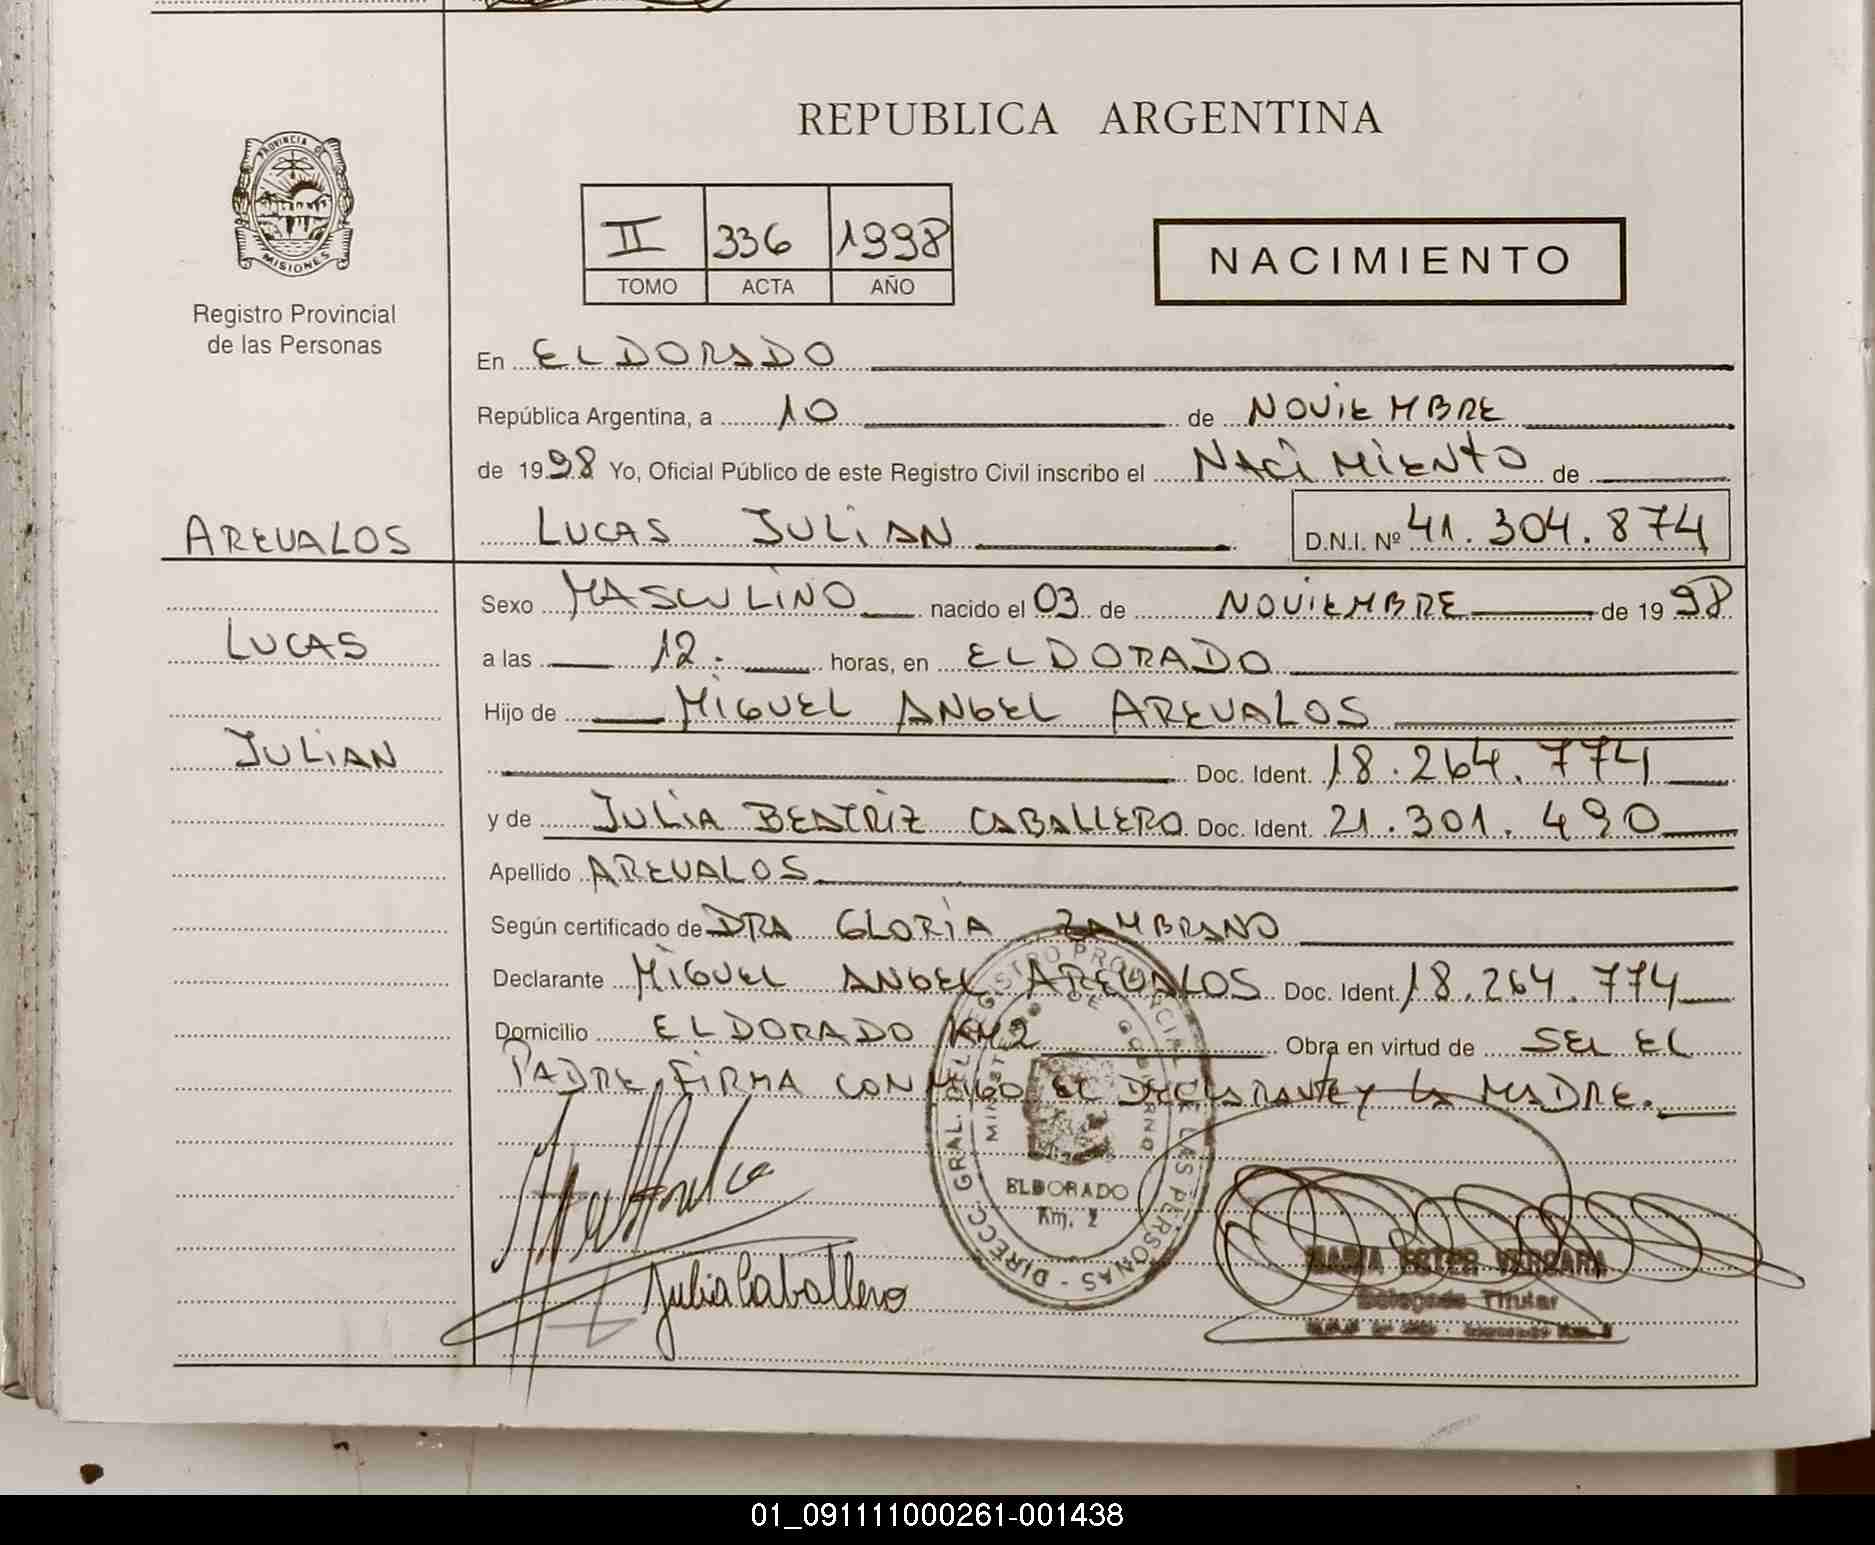 REPUBLICA ARGENTINA
PROVINCIA DE
MISIONES
Registro Provincial
de las Personas
II 336 1998
TOMO ACTA AÑO
NACIMIENTO
En ELDORADO
República Argentina, a 10 de NOVIEMBRE
de 1998 Yo, Oficial Público de este Registro Civil inscribo el NACIMIENTO de
AREVALOS
LUCAS
JULIAN
LUCAS JULIAN D.N.I. Nº 41.304.874
Sexo MASCULINO nacido el 03 de NOVIEMBRE de 1998
a las 12. horas, en ELDORADO
Hijo de MIGUEL ANGEL AREVALOS
Doc. Ident. 18.264.774
y de JULIA BEATRIZ CABALLERO Doc. Ident. 21.301.490
Apellido AREVALOS
Según certificado de DRA GLORIA ZAMBRANO
Declarante MIGUEL ANGEL AREVALOS Doc. Ident. 18.264.774
Domicilio ELDORADO KM2 Obra en virtud de SER EL
PADRE, FIRMA CONMIGO EL DECLARANTE Y LA MADRE.
DIRECC. GRAL. DEL REGISTRO PROVINCIAL DE LAS PERSONAS
MINISTERIO DE GOBIERNO
ELDORADO
Km. 2
Julia Caballero
MARIA ESTER VERGARA
Delegada Titular
01_091111000261-001438